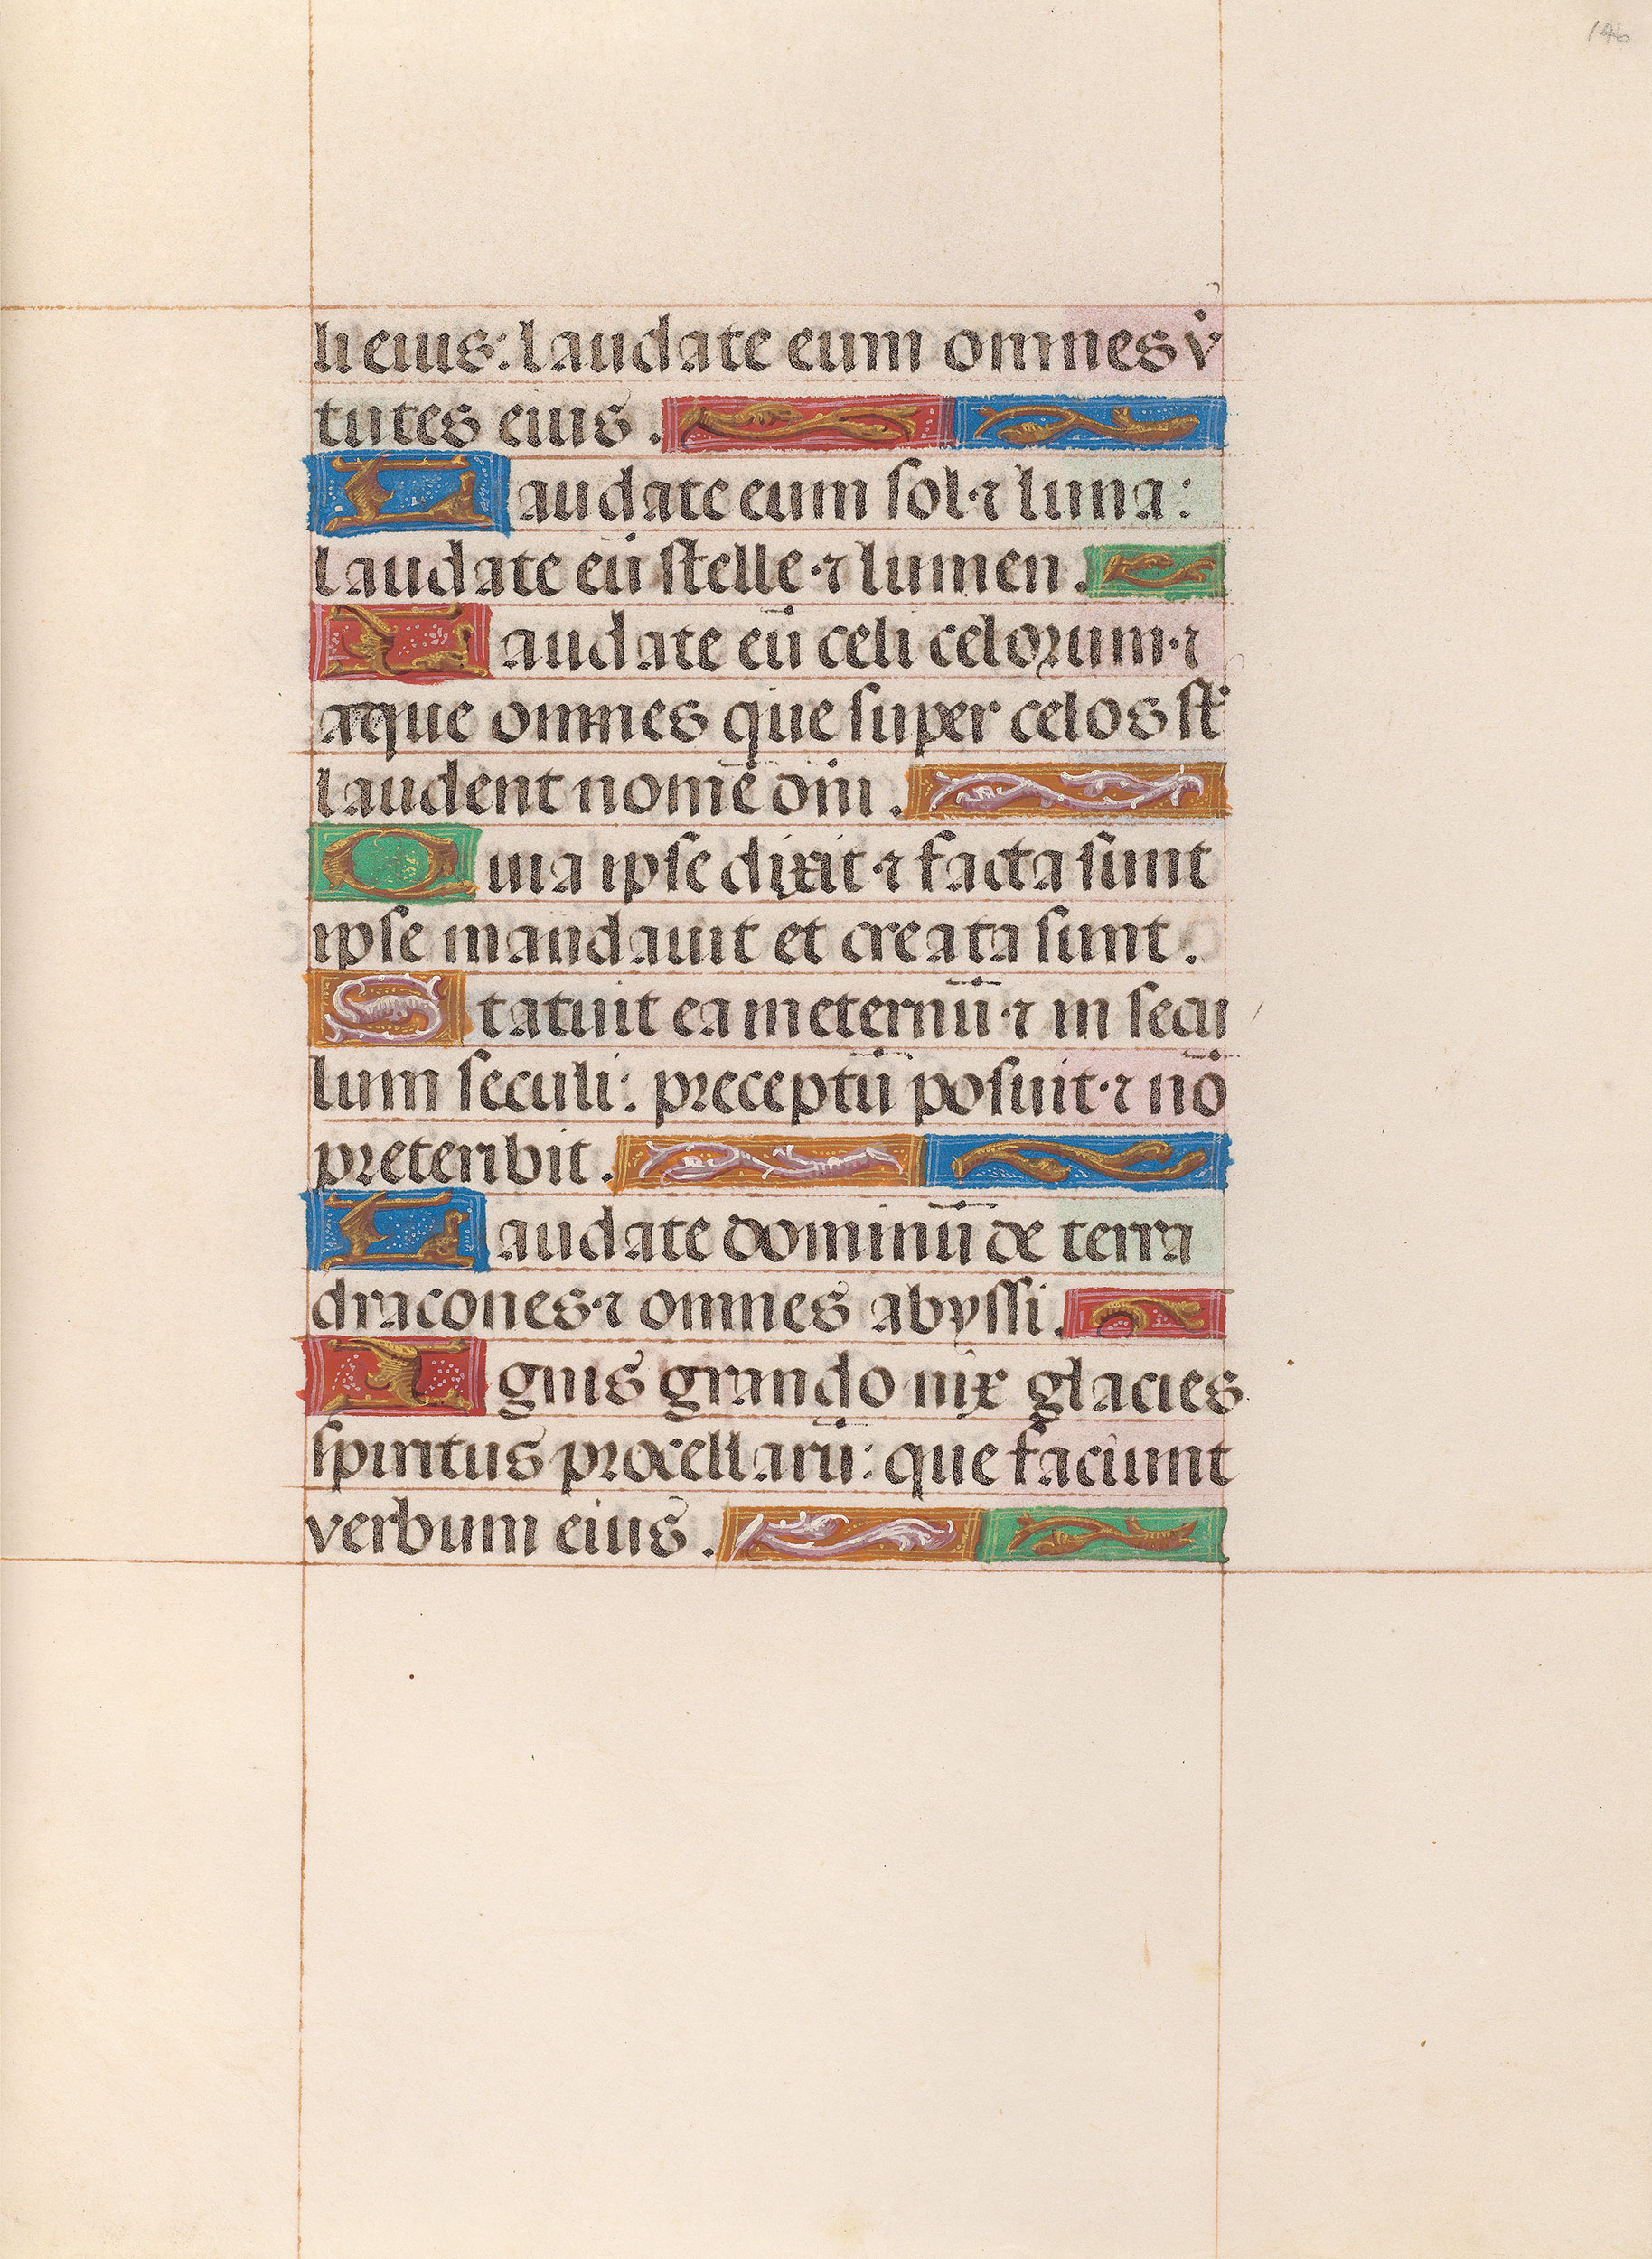 146
li eius: laudate eum omnes v̉
tutes eius.
Laudate eum sol· ⁊ luna:
laudate eū stelle· ⁊ lumen.
Laudate eū celi celorum· ⁊
aque omnes que super celos st̉
laudent nomē dn̄i.
Quia ipse dixit· ⁊ facta sunt
ipse mandavit et creata sunt.
Statuit ea in eternū· ⁊ in secu
lum seculi: preceptū posuit· ⁊ nō
preteribit.
Laudate dominū de terra
dracones· ⁊ omnes abyssi.
Ignis grando nix glacies
spiritus procellarū: que faciunt
verbum eius.